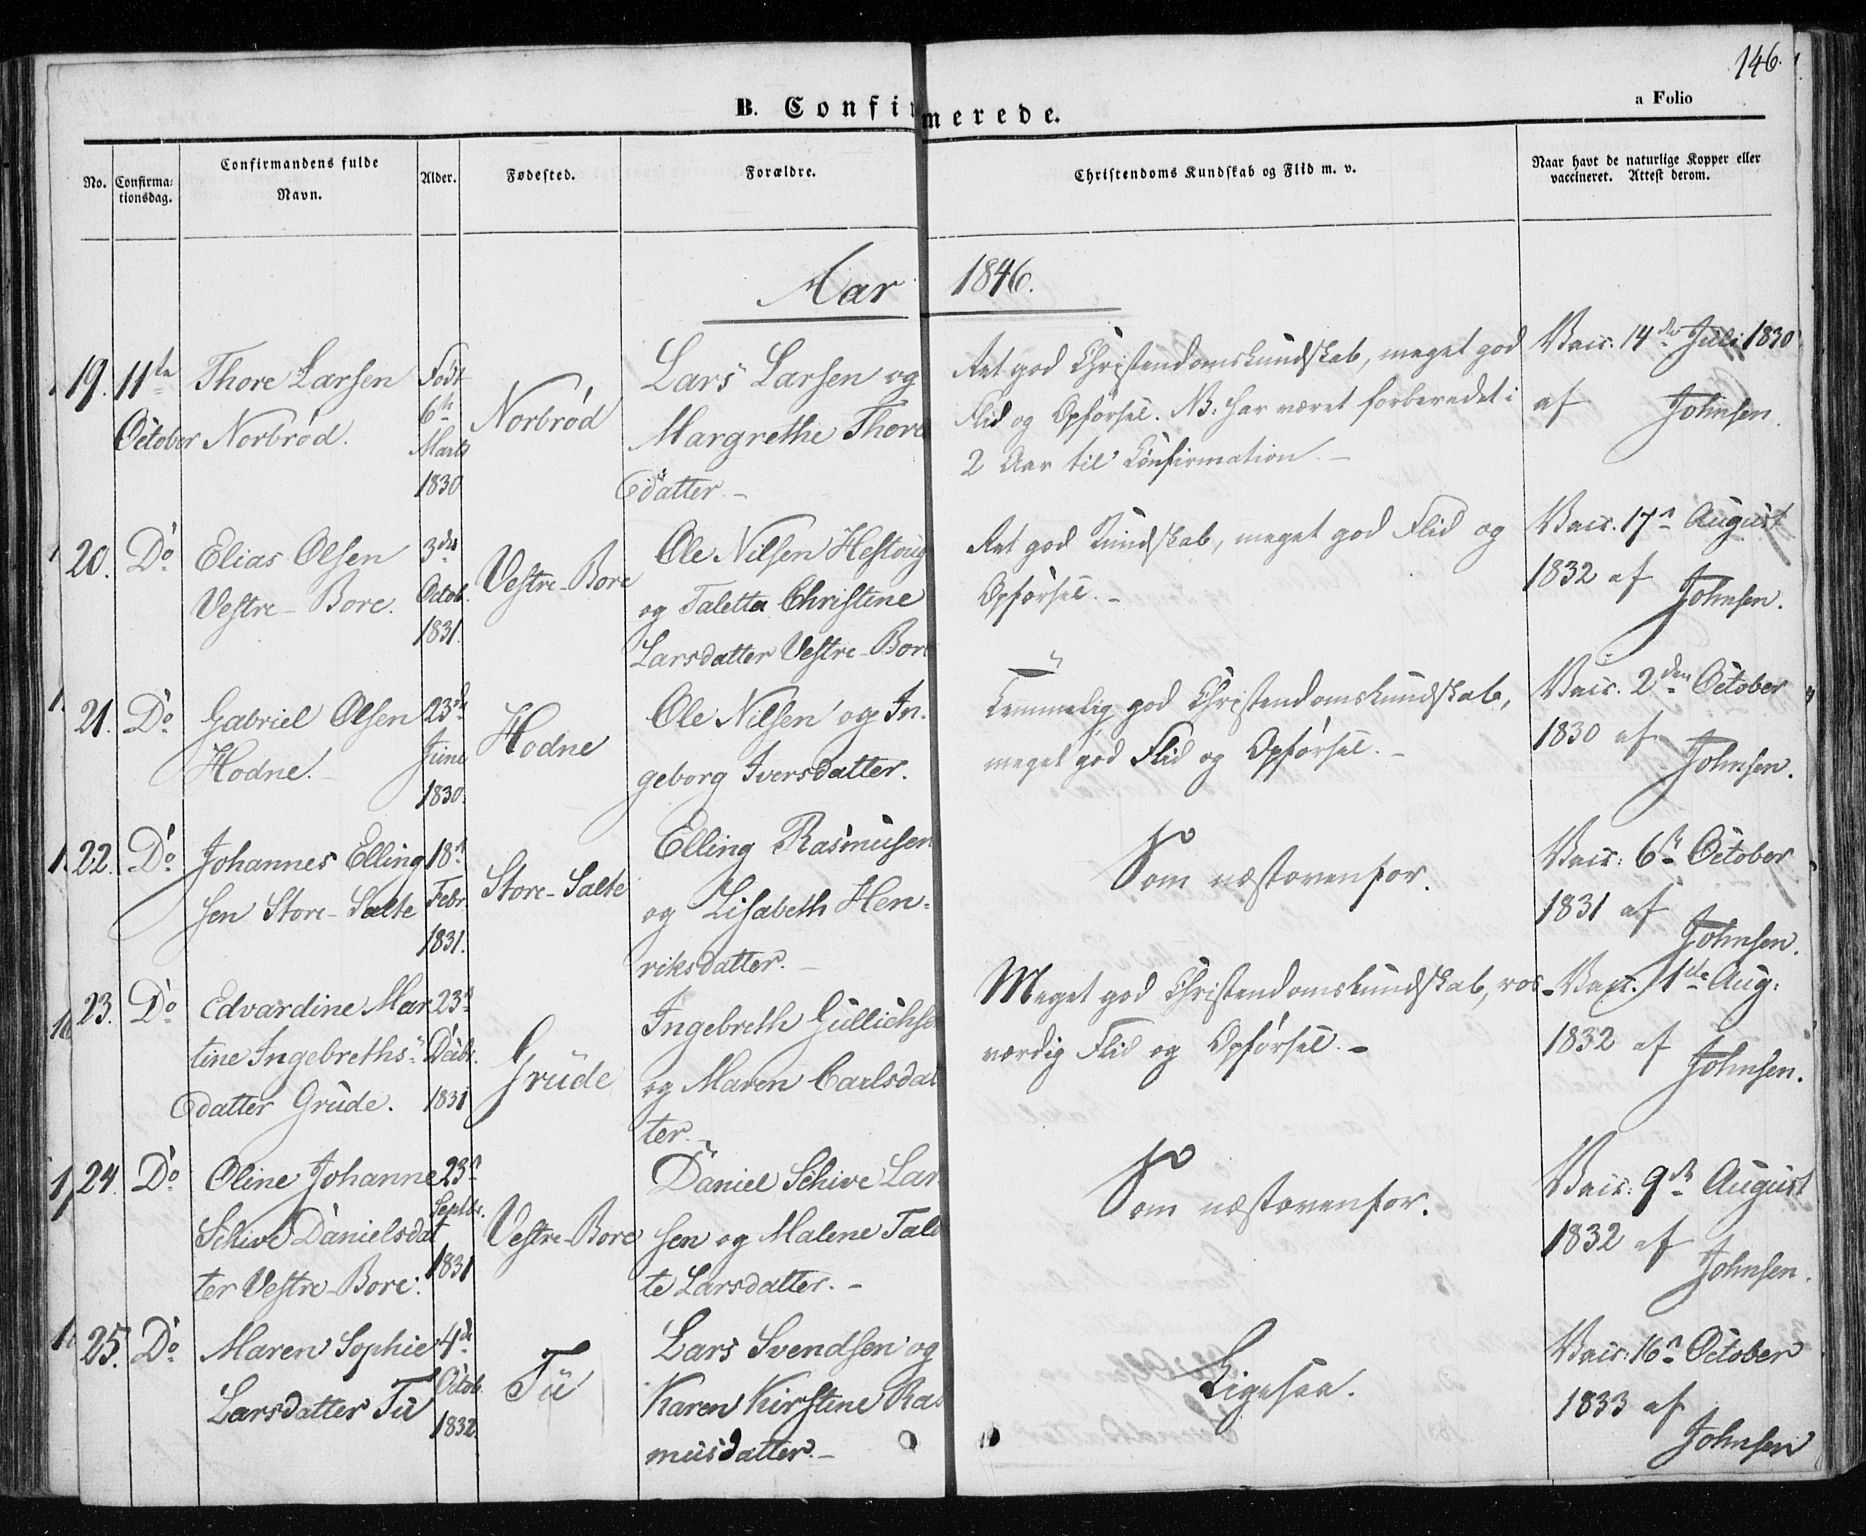 146.
B. Confirmerede.
a Folio
No.
Confirma-
tionsdag.
Confirmandens fulde
Navn.
Alder.
Fødested.
Forældre.
Christendoms Kundskab og Flid m. v.
Naar havt de naturlige Kopper eller
vaccineret. Attest derom.
Aar 1846.
19. 11te
October
Thore Larsen
Norbrød.
Født
6te
Marts
1830
Norbrød
Lars Larsen og
Margrethe Thors
datter. -
Ret god Christendomskundskab, meget god
Flid og Opførsel. NB: har været forberedet i
2 Aar til Confirmation. -
Vacc. 14de Juli 1830
af Johnsen.
20. Do
Elias Olsen
Vestre-Bore.
3die
Octob.
1831.
Vestre-Bore
Ole Nilsen
og Taletta Christine
Larsdatter Vestre-Bore
Ret god Kundskab, meget god Flid og
Opførsel. -
Vacc. 17n August
1832 af
Johnsen.
21. Do
Gabriel Olsen
Hodne.
23de
Juni
1830.
Hodne
Ole Nilsen og In-
geborg Iversdatter.
Temmelig god Christendomskundskab,
meget god Flid og Opførsel. -
Vacc. 2den October
1830 af
Johnsen.
22. Do
Johannes Elling
sen Store-Salte
18n
Febr.
1831.
Store-Salte
Elling Rasmusen
og Lisabeth Hen-
riksdatter. -
Som næstovenfor.
Vacc: 6te October
1831 af
Johnsen.
23. Do
Edvardine Mar
tine Ingebreths-
datter Grude.
23n
Decbr.
1831
Grude
Ingebreth Gullichse
og Maren Carlsdat
ter. -
Meget god Christendomskundskab, ros-
værdig Flid og Opførsel. -
Vacc. 1ste Aug:
1832 af
Johnsen.
24. Do
Oline Johanne
Schive Danielsdat
ter Vestre-Bore.
23n
Septbr.
1831
Vestre-Bore
Daniel Schive Lar
sen og Malene Tale
te Larsdatter. -
Som næstovenfor.
Vacc: 9de August
1832 af
Johnsen.
25. Do
Maren Sophie
Larsdatter Tu
4de
Octob.
1832
Tu
Lars Svendsen og
Karen Kirstine Ras
musdatter. -
Ligesaa.
Vacc: 16n October
1833 af
Johnsen